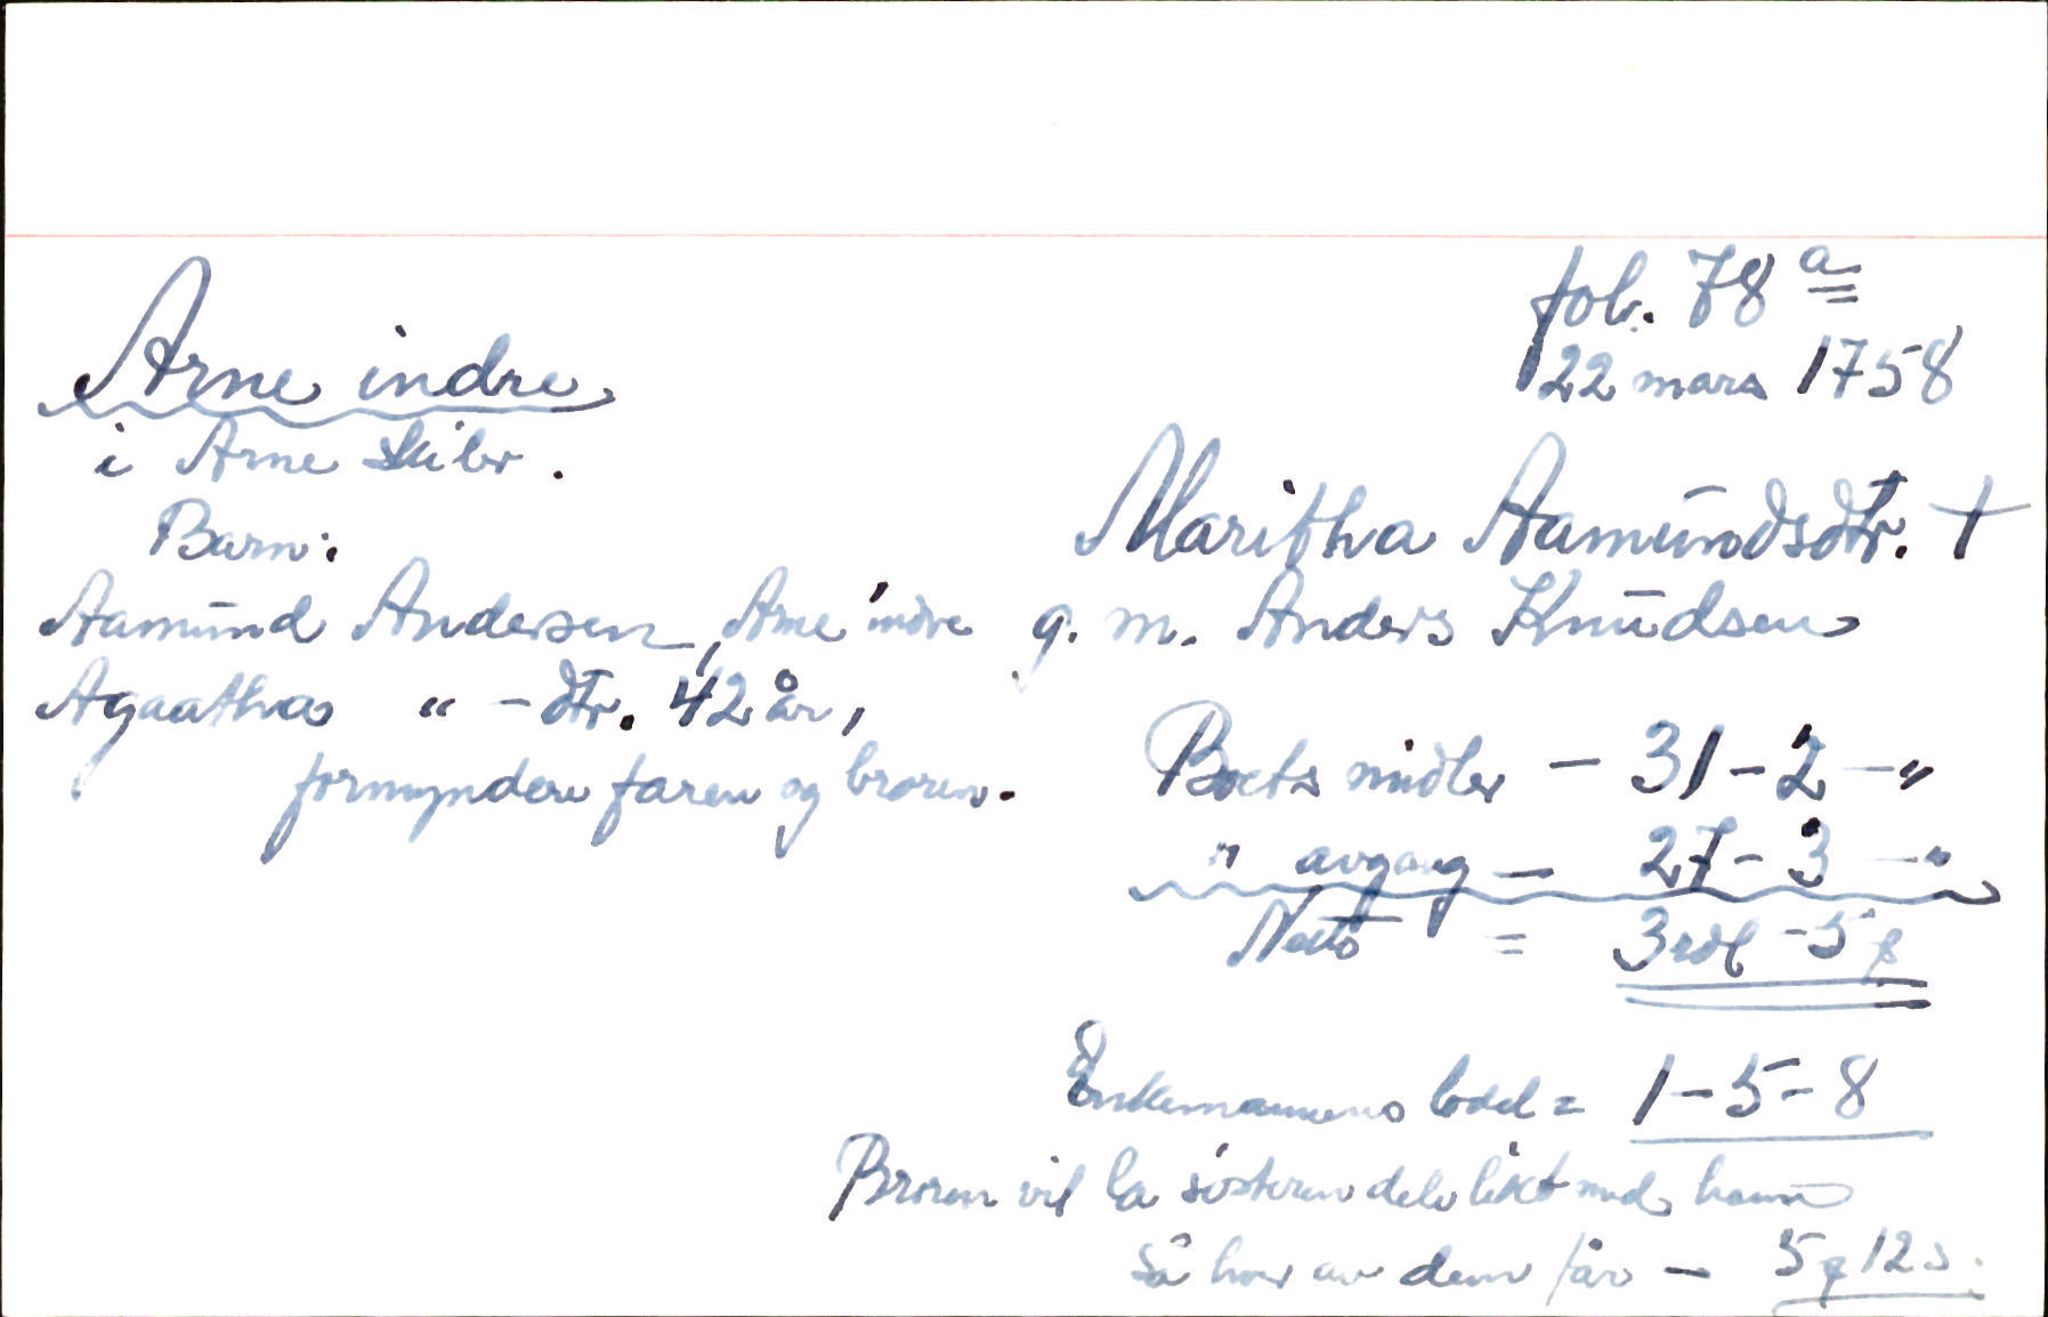 fol. 78 a
22 mars 1758
Arne indre
i Arne skibr.
Maritha Aamundsdtr. †
g. m. Anders Knudsen
Barn:
Aamund Andersen, Arne indre
Agaatha " - dtr. 42 år,
formyndere faren og broren.
Boets midler - 31 - 2 - "
" avgang - 27 - 3 - "
Netto = 3 rdl - 5
Enkemannens lodd = 1 - 5 - 8
Broren vil la søsteren dele likt med ham
så hver av dem får - 5 12 s.